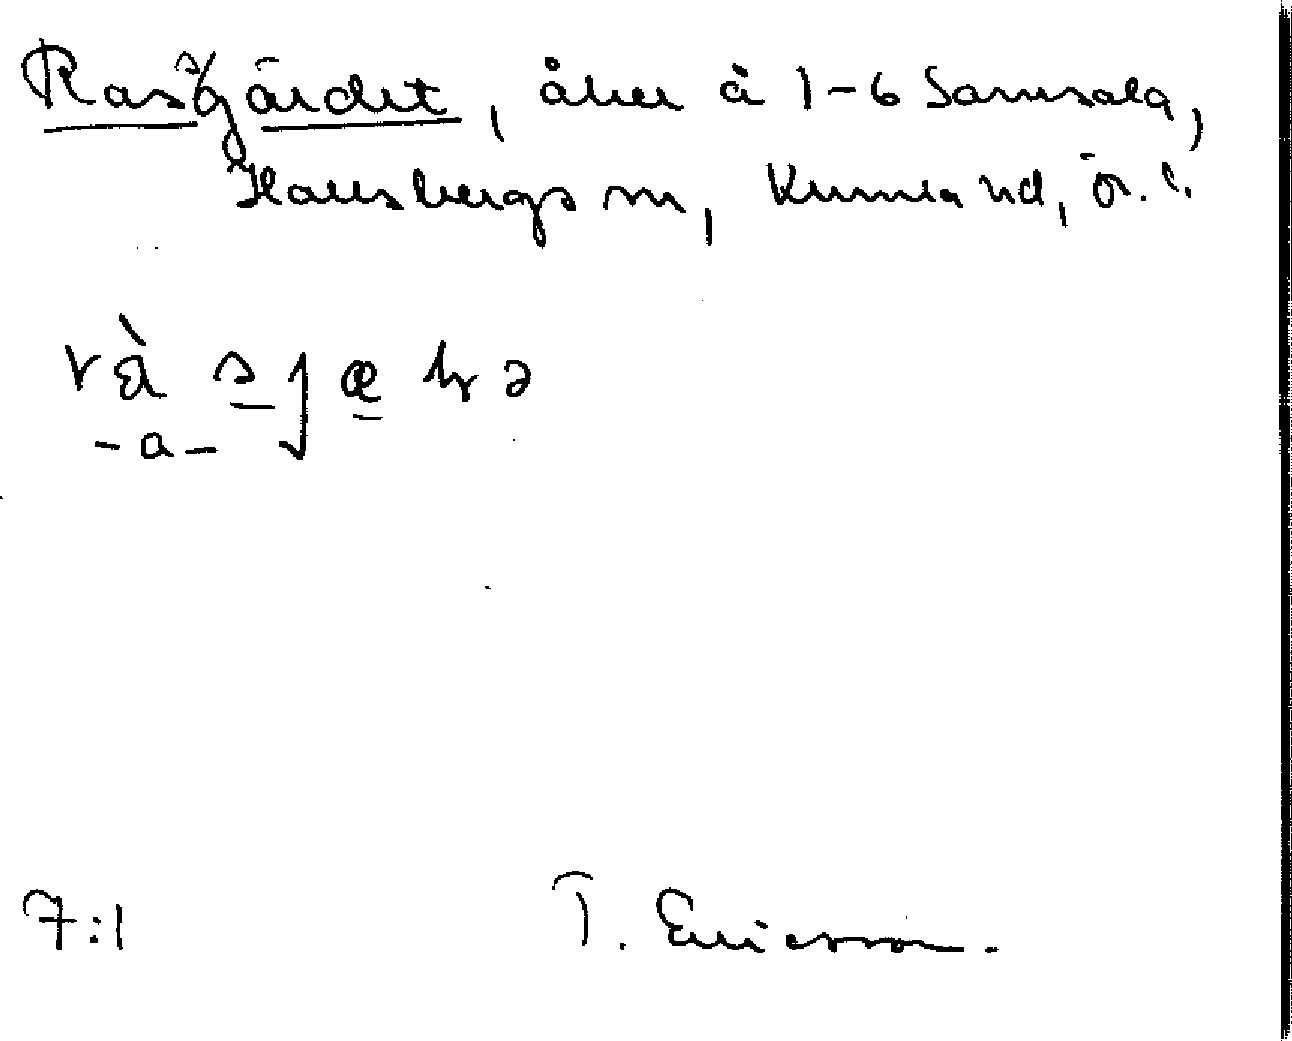 Rasgärdet, åker å 1-6 Samsala,
Hallsbergs sn, Kumla hd, ör. l.
7:1 T. Ericsson.